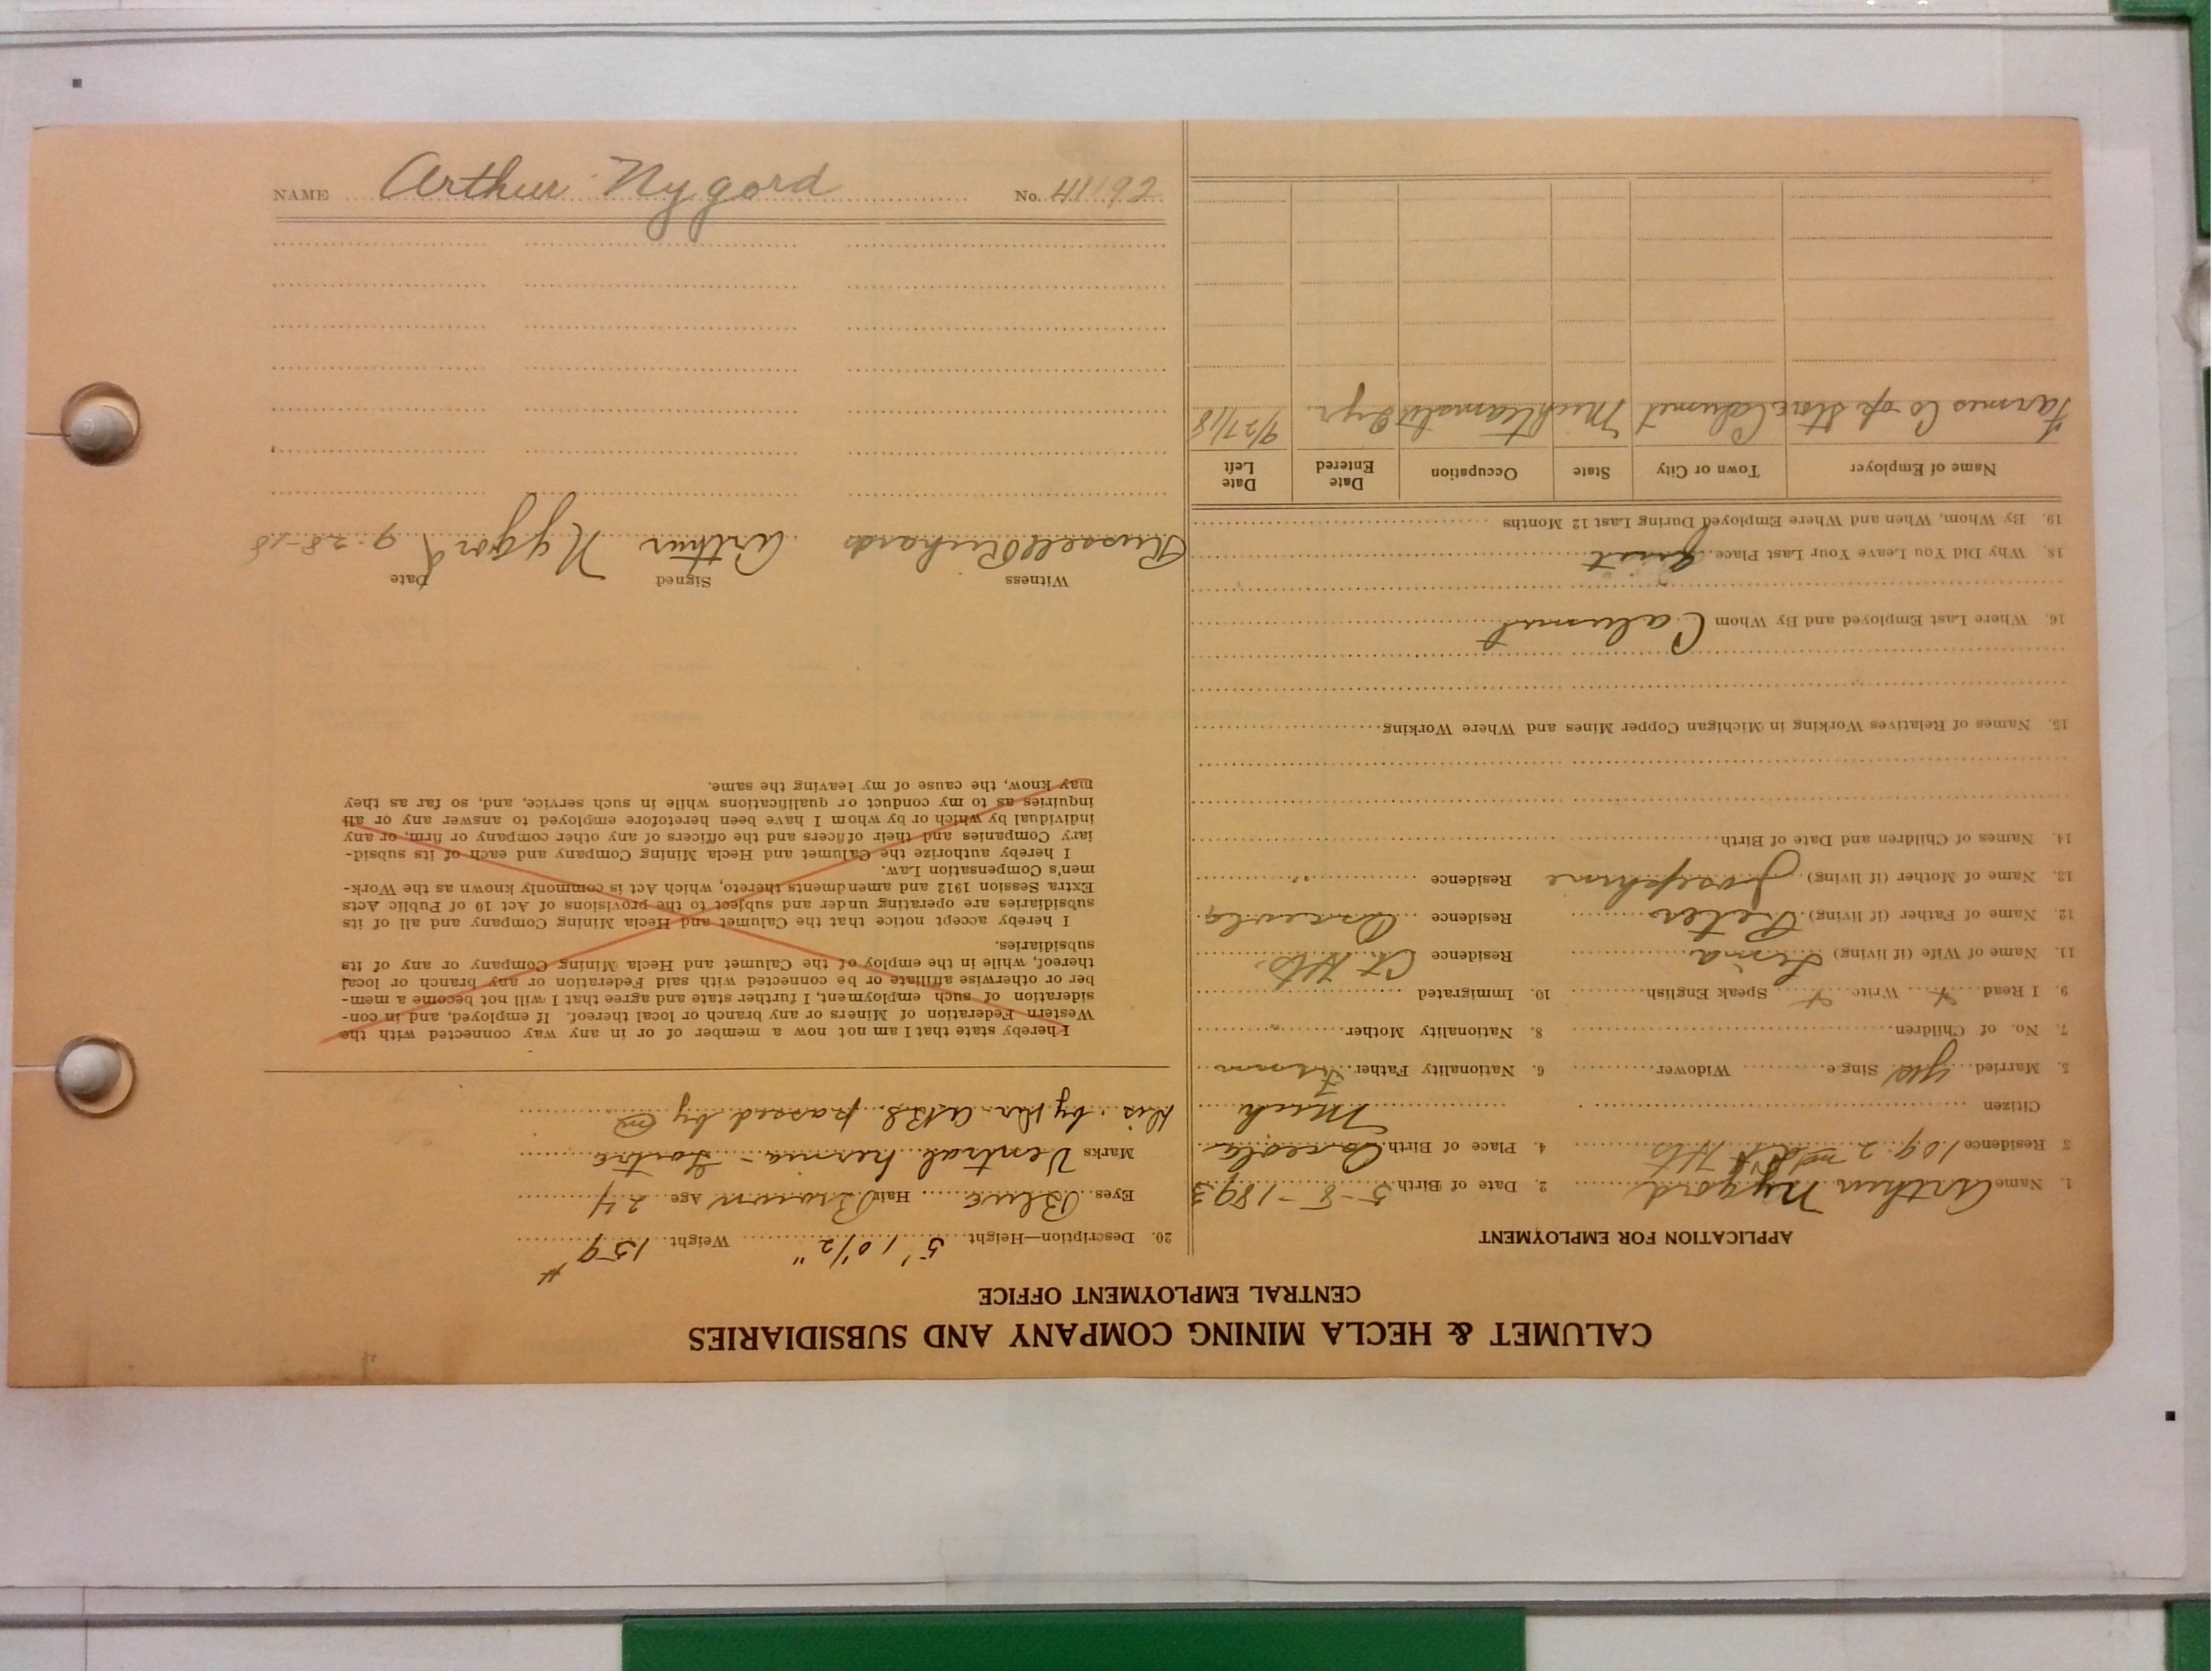 CALUMET & HECLA MINING COMPANY AND SUBSIDIARIES
CENTRAL EMPLOYMENT OFFICE
APPLICATION FOR EMPLOYMENT
1. Name Arthur Nygord 2. Date of Birth 5-8-1893
3 Residence 109. 2nd St Hts 4. Place of Birth Osceola
Citizen Mich
5. Married yes Sing e Widower 6. Nationality Father
7. No. of Children 8. Nationality Mother "
9. I Read x Write x Speak English 10. Immigrated
11. Name of Wife (if living) Residence Hts.
12. Name of Father (if living) Peter Residence Osceola
13. Name of Mother (if living) Josephine Residence "
14. Names of Children and Date of Birth
15. Names of Relatives Working in Michigan Copper Mines and Where Working
16. Where Last Employed and By Whom Calumet
18. Why Did You Leave Your Last Place quit
19. By Whom, When and Where Employed During Last 12 Months
Name of Employer Town or City State Occupation Date Entered Date Left
Farmers Co op Store Calumet Mich teamster 2 yr. 9/27/18
20. Description—Height 5' 10 1/2" Weight 159 #
Eyes Blue Hair Brown Age 24
Marks Ventral hernia -
by passed by
I hereby state that I am not now a member of or in any way connected with the
Western Federation of Miners or any branch or local thereof. If employed, and in con-
sideration of such employment, I further state and agree that I will not become a mem-
ber or otherwise affiliate or be connected with said Federation or any branch or local
thereof, while in the employ of the Calumet and Hecla Mining Company or any of its
subsidiaries.
I hereby accept notice that the Calumet and Hecla Mining Company and all of its
subsidiaries are operating under and subject to the provisions of Act 10 of Public Acts
Extra Session 1912 and amendments thereto, which Act is commonly known as the Work-
men's Compensation Law.
I hereby authorize the Calumet and Hecla Mining Company and each of its subsid-
iary Companies and their officers and the officers of any other company or firm, or any
individual by which or by whom I have been heretofore employed to answer any or all
inquiries as to my conduct or qualifications while in such service, and, so far as they
may know, the cause of my leaving the same.
Witness Signed Date
Russell Richards Arthur Nygord 9-28-18
NAME Arthur Nygord No. 41192